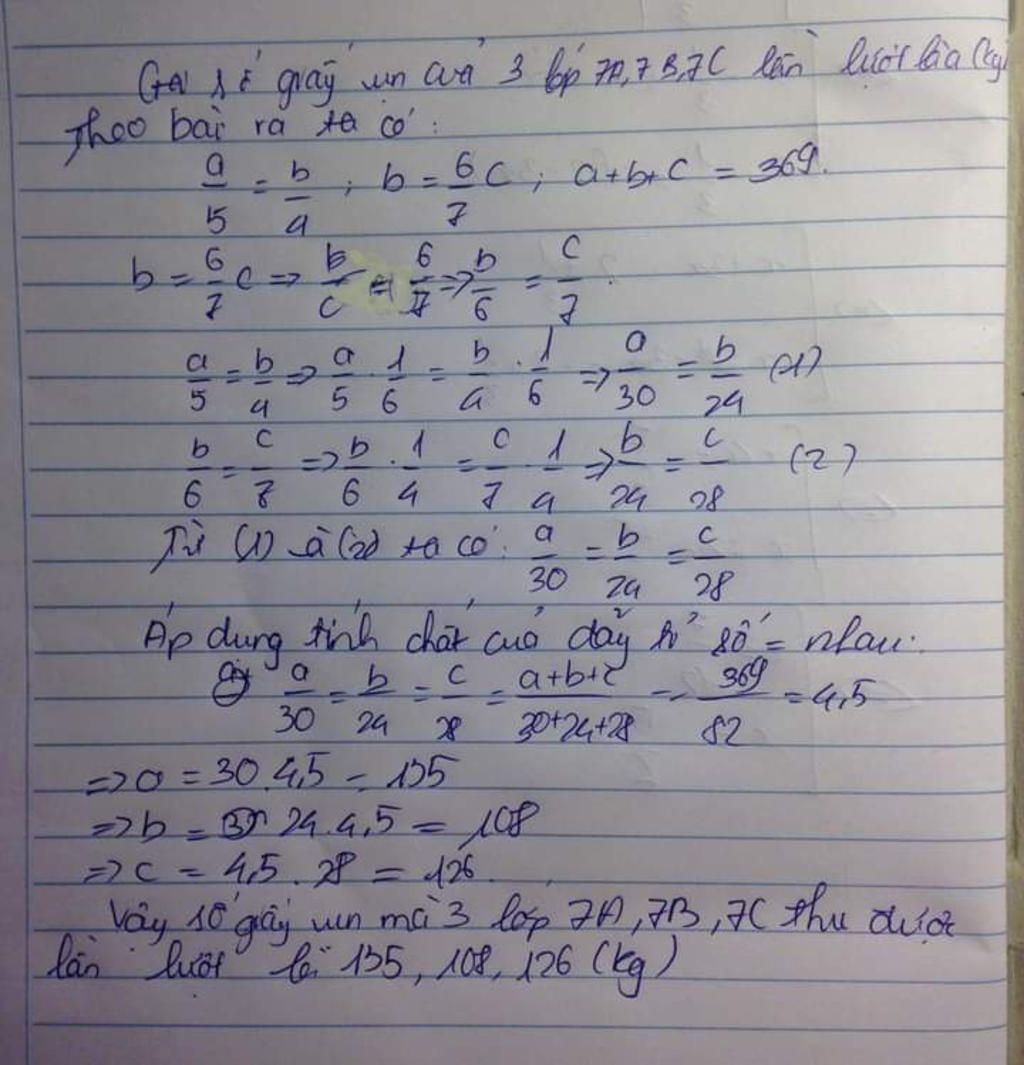 Gọi số giấy vụn của 3 lớp 7A, 7B, 7C lần lượt là a (kg)
Theo bài ra ta có:
a/5 = b/4 ; b = 6/7 c ; a+b+c = 369.
b = 6/7 c => b/c = 6/7 => b/6 = c/7.
a/5 = b/4 => a/5 . 1/6 = b/4 . 1/6 => a/30 = b/24 (1)
b/6 = c/7 => b/6 . 1/4 = c/7 . 1/4 => b/24 = c/28 (2)
Từ (1) à (2) ta có: a/30 = b/24 = c/28
Áp dụng tính chất của dãy tỉ số = nhau:
a/30 = b/24 = c/28 = a+b+c/30+24+28 = 369/82 = 4,5
=> a = 30.4,5 = 135
=> b = 24.4,5 = 108
=> c = 4,5 . 28 = 126.
Vậy số giấy vụn mà 3 lớp 7A, 7B, 7C thu được
lần lượt là 135, 108, 126 (kg)